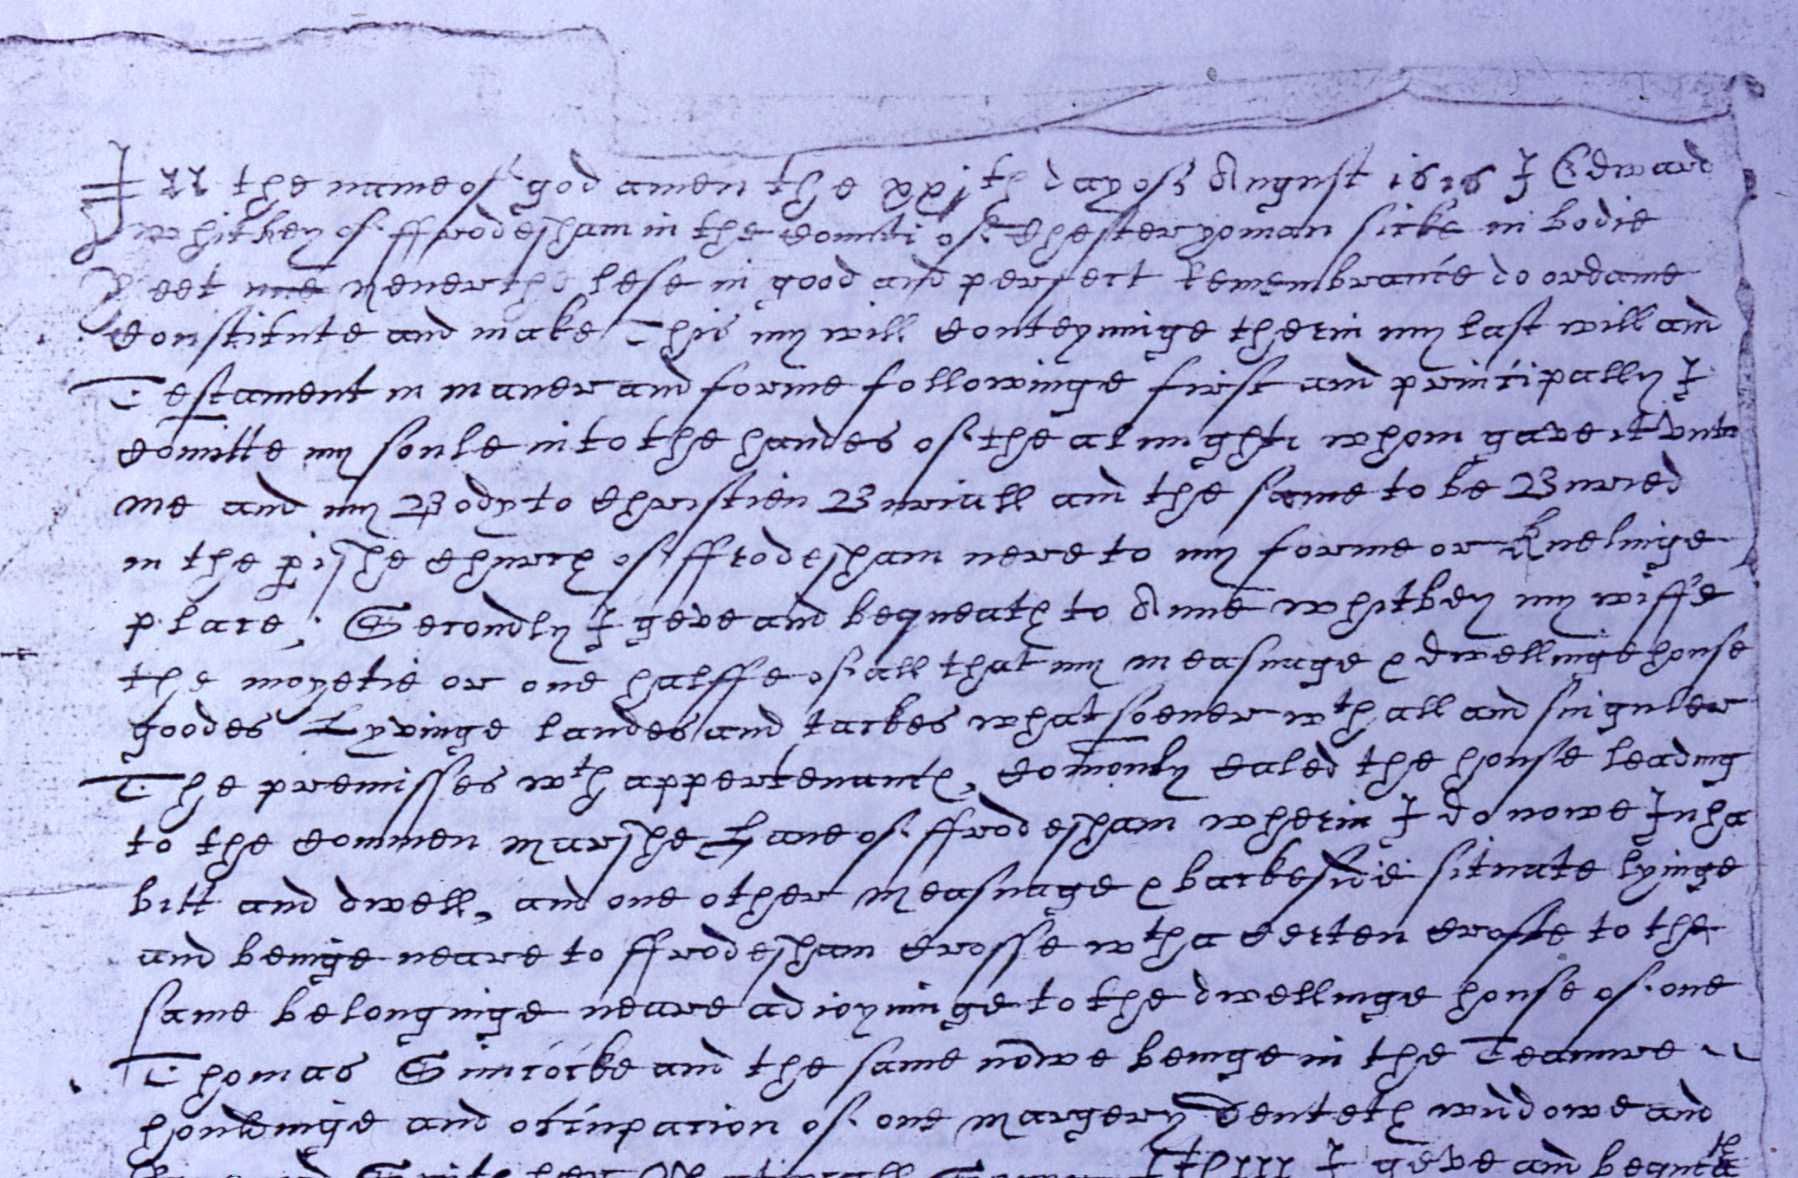 In the name of god amen the xxjth day of August 1616 I Edward
Whitbey of ffrodesham in the countie of Chester yoman sicke in bodie
Yeet neverthelese in good and perfect Remembrance do ordaine
Constitute and make This my will conteyninge therin my last will and
Testament in maner and forme followinge first and principally I
comitte my soule into the handes of the almighti whom gave it unto
me and my Body to Christien Buriall and the same to be Buried
in the pishe Church of ffrodesham nere to my forme or Knelinge
place, Secondly I geve and bequeath to Anne Whitbey my wiffe
the moyetie or one halffe of all that my measuage & dwellinge house
goodes Lyvinge landes and tackes whatsoever wth all and singuler
The premisses wth appertenantes, comonly caled the house leading
to the common marshe Lane of ffrodesham wherin I do nowe Inha
bitt and dwell, and one other measuage & backeside situate lyinge
and beinge neare to ffrodesham crosse wth a certen crofte to the
same belonginge neare adioyninge to the dwellinge house of one
Thomas Simcocke and the same nowe beinge in the Teanure
houldinge and occupacion of one margery widdowe and
her I geve and bequea